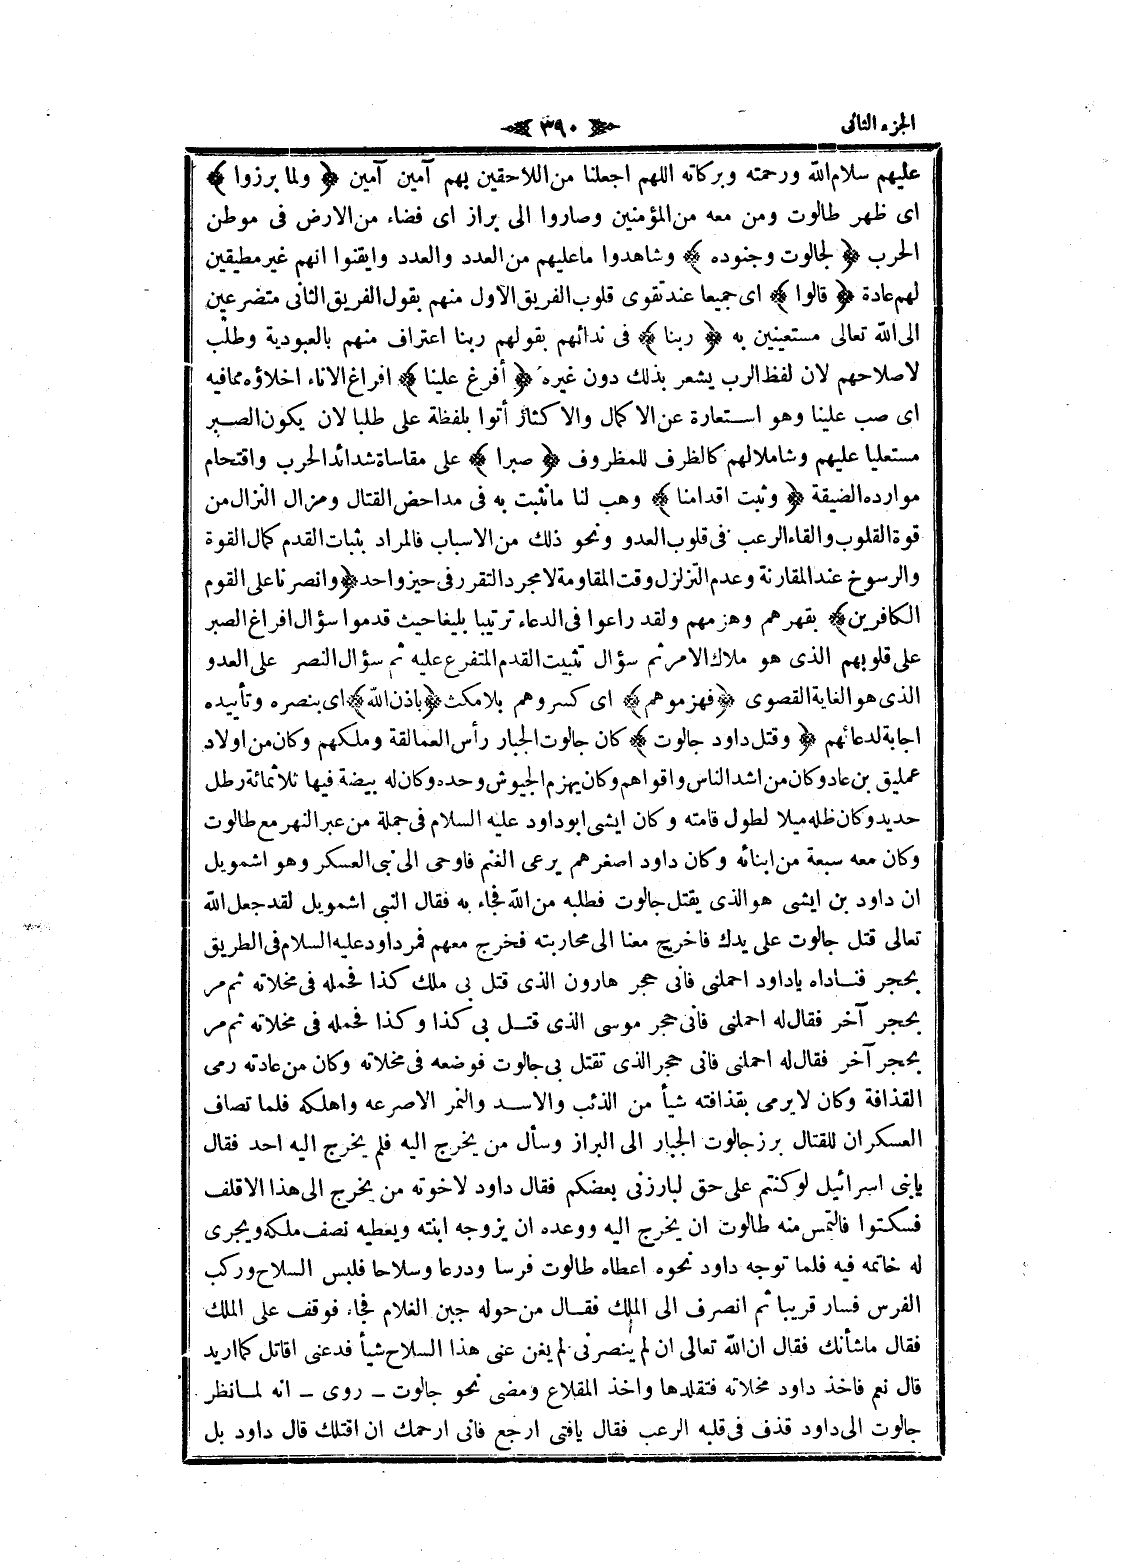 الجزء الثانى
﴿ ٣٩٠ ﴾
عليهم سلام الله ورحمته وبركاته اللهم اجعلنا من اللاحقين بهم آمين آمين ﴿ ولما برزوا ﴾
اى ظهر طالوت ومن معه من المؤمنين وصاروا الى براز اى فضاء من الارض فى موطن
الحرب ﴿ لجالوت وجنوده ﴾ وشاهدوا ماعليهم من العدد والعدد وايقنوا انهم غير مطيقين
لهم عادة ﴿ قالوا ﴾ اى جميعا عند تقوى قلوب الفريق الاول منهم بقول الفريق الثانى متضرعين
الى الله تعالى مستعينين به ﴿ ربنا ﴾ فى ندائهم بقولهم ربنا اعتراف منهم بالعبودية وطلب
لاصلاحهم لان لفظ الرب يشعر بذلك دون غيره ﴿ أفرغ علينا ﴾ افراغ الاناء اخلاؤه مما فيه
اى صب علينا وهو استعارة عن الاكمال والاكثار أتوا بلفظة على طلبا لان يكون الصبر
مستعليا عليهم وشاملالهم كالظرف للمظروف ﴿ صبرا ﴾ على مقاساة شدائد الحرب واقتحام
موارده الضيقة ﴿ وثبت اقدامنا ﴾ وهب لنا مانثبت به فى مداحض القتال ومزال النزال من
قوة القلوب والقاء الرعب فى قلوب العدو ونحو ذلك من الاسباب فالمراد بثبات القدم كمال القوة
والرسوخ عند المقارنة وعدم التزلزل وقت المقاومة لامجرد التقرر فى حيز واحد ﴿ وانصرنا على القوم
الكافرين ﴾ بقهرهم وهزمهم ولقد راعوا فى الدعاء ترتيبا بليغا حيث قدموا سؤال افراغ الصبر
على قلوبهم الذى هو ملاك الامر ثم سؤال تثبيت القدم المتفرع عليه ثم سؤال النصر على العدو
الذى هو الغاية القصوى ﴿ فهزموهم ﴾ اى كسروهم بلامكث ﴿ باذن الله ﴾ اى بنصره وتأييده
اجابة لدعائهم ﴿ وقتل داود جالوت ﴾ كان جالوت الجبار رأس العمالقة وملكهم وكان من اولاد
عمليق بن عاد وكان من اشد الناس واقواهم وكان يهزم الجيوش وحده وكان له بيضة فيها ثلاثمائة رطل
حديد وكان ظله ميلا لطول قامته وكان ايشى ابو داود عليه السلام فى جملة من عبر النهر مع طالوت
وكان معه سبعة من ابنائه وكان داود اصغرهم يرعى الغنم فاوحى الى نبى العسكر وهو اشمويل
ان داود بن ايشى هو الذى يقتل جالوت فطلبه من الله فجاء به فقال النبى اشمويل لقد جعل الله
تعالى قتل جالوت على يدك فاخرج معنا الى محاربته فخرج معهم فمر داود عليه السلام فى الطريق
بحجر فناداه ياداود احملنى فانى حجر هارون الذى قتل بى ملك كذا فحمله فى مخلاته ثم مر
بحجر آخر فقال له احملنى فانى حجر موسى الذى قتل بى كذا وكذا فحمله فى مخلاته ثم مر
بحجر آخر فقال له احملنى فانى حجر الذى تقتل بى جالوت فوضعه فى مخلاته وكان من عادته رمى
القذافة وكان لا يرمى بقذافته شيأ من الذئب والاسد والنمر الاصرعه واهلكه فلما تصاف
العسكران للقتال برز جالوت الجبار الى البراز وسأل من يخرج اليه فلم يخرج اليه احد فقال
يابنى اسرائيل لو كنتم على حق لبارزنى بعضكم فقال داود لاخوته من يخرج الى هذا الاقلف
فسكتوا فالتمس منه طالوت ان يخرج اليه ووعده ان يزوجه ابنته ويعطيه نصف ملكه ويجرى
له خاتمه فيه فلما توجه داود نحوه اعطاه طالوت فرسا ودرعا وسلاحا فلبس السلاح وركب
الفرس فسار قريبا ثم انصرف الى الملك فقال من حوله جبن الغلام فجاء فوقف على الملك
فقال ماشأنك فقال ان الله تعالى ان لم ينصرنى لم يغن عنى هذا السلاح شيأ فدعنى اقاتل كما اريد
قال نعم فاخذ داود مخلاته فتقلدها واخذ المقلاع ومضى نحو جالوت ـ روى ـ انه لما نظر
جالوت الى داود قذف فى قلبه الرعب فقال يافتى ارجع فانى ارحمك ان اقتلك قال داود بل